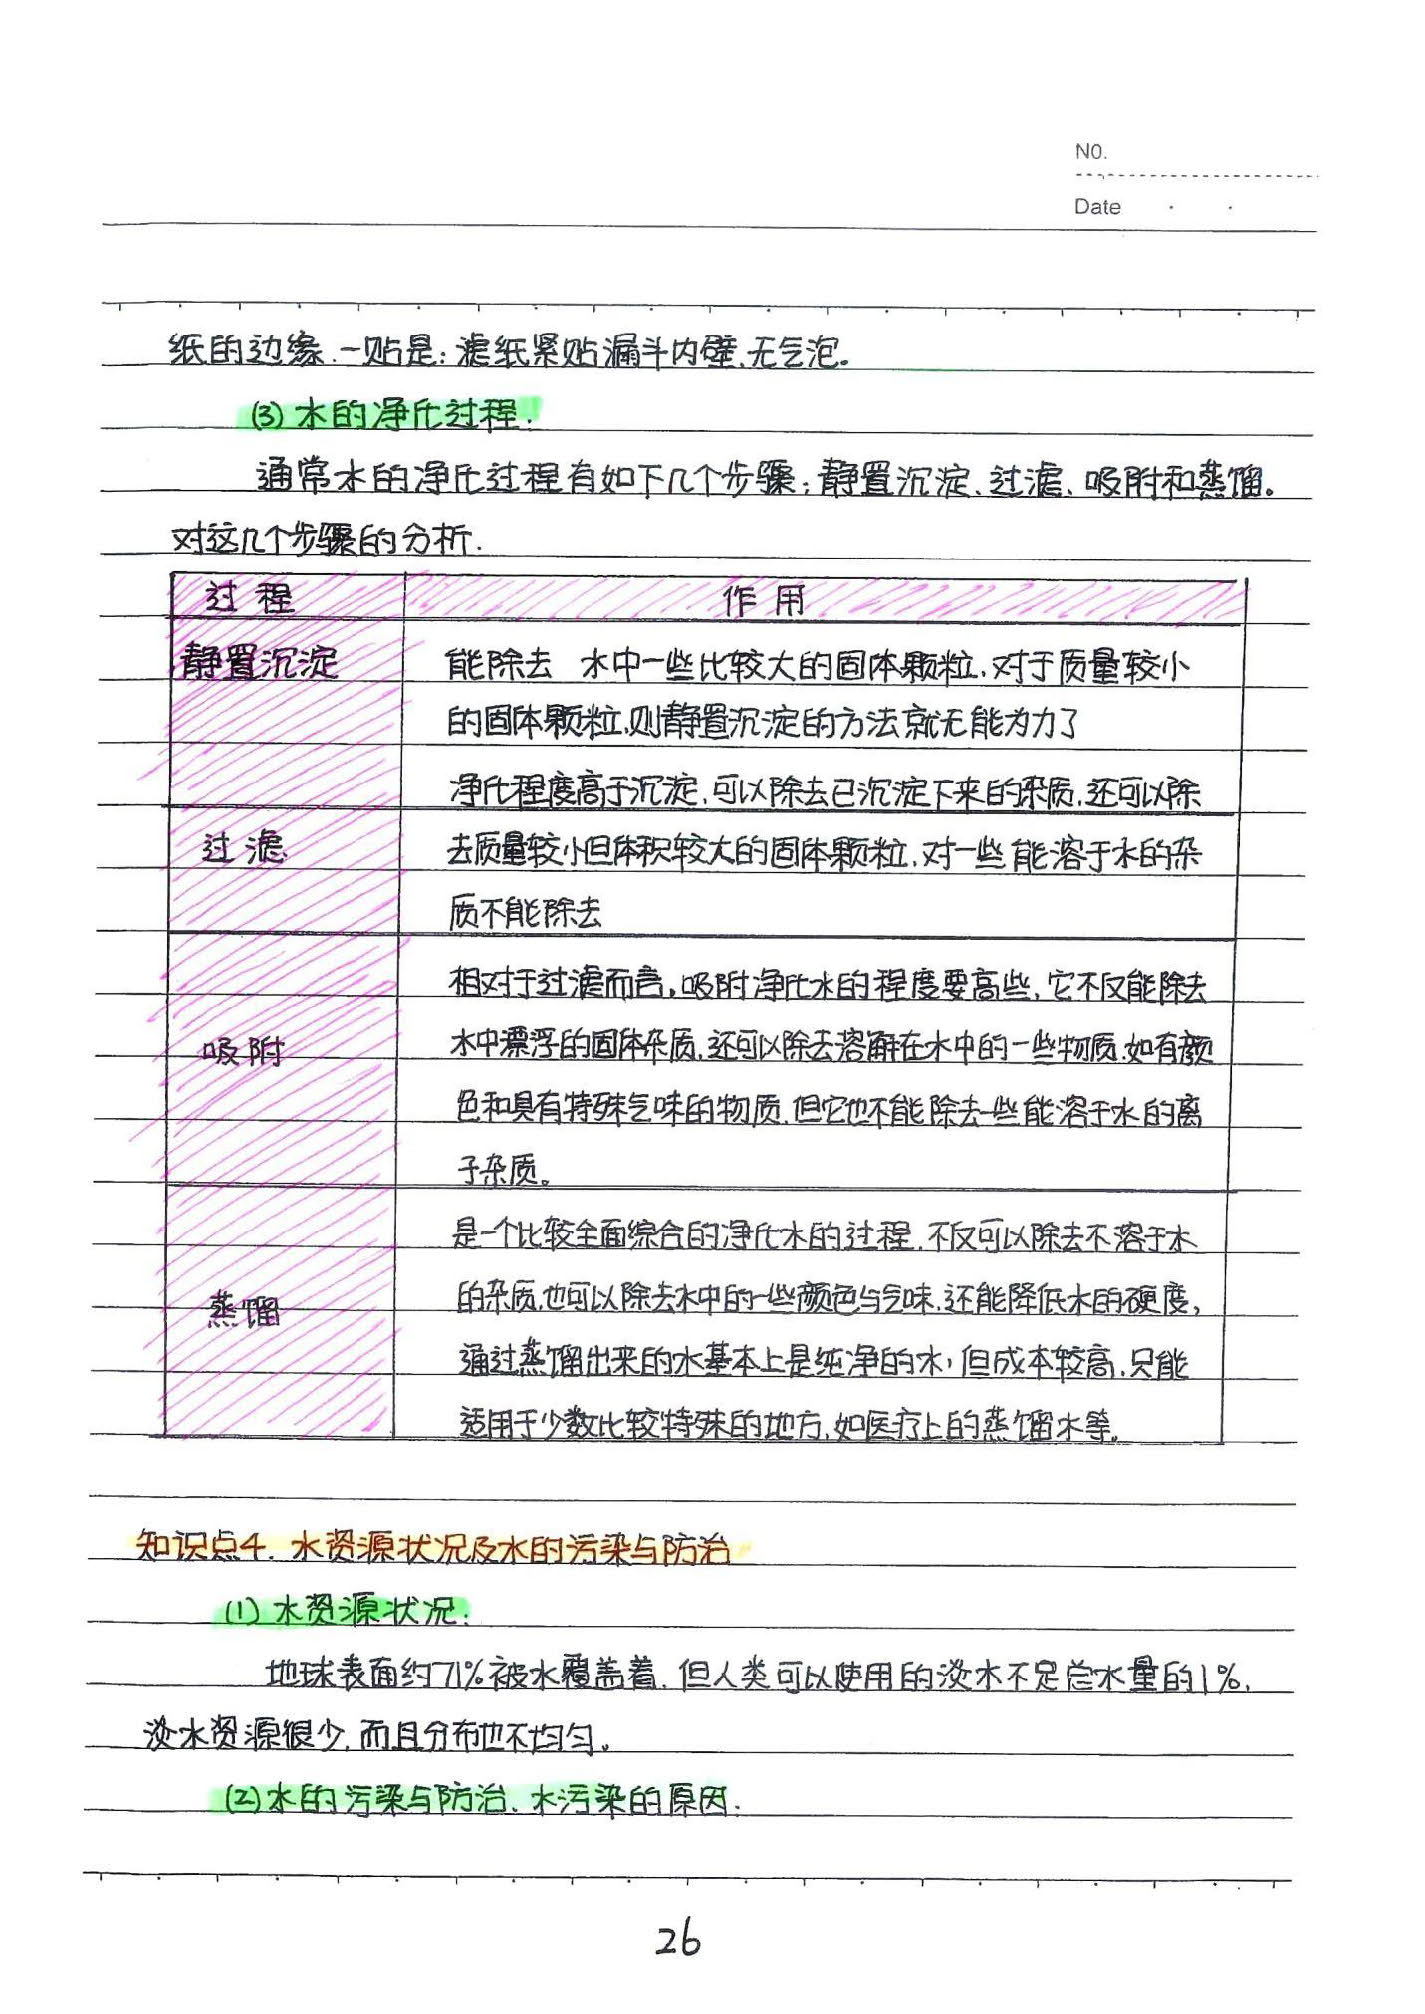 NO.
Date
纸的边缘.一贴是:滤纸紧贴漏斗内壁,无气泡。
(3)水的净化过程.
通常水的净化过程有如下几个步骤:静置沉淀、过滤、吸附和蒸馏。
对这几个步骤的分析.
过程 作用
静置沉淀 能除去 水中一些比较大的固体颗粒,对于质量较小
的固体颗粒,则静置沉淀的方法就无能为力了
净化程度高于沉淀,可以除去已沉淀下来的杂质,还可以除
过滤 去质量较小但体积较大的固体颗粒,对一些能溶于水的杂
质不能除去
相对于过滤而言,吸附净化水的程度要高些,它不仅能除去
吸附 水中漂浮的固体杂质,还可以除去溶解在水中的一些物质,如有颜
色和具有特殊气味的物质,但它也不能除去一些能溶于水的离
子杂质。
是一个比较全面综合的净化水的过程,不仅可以除去不溶于水
蒸馏 的杂质,也可以除去水中的一些颜色与气味,还能降低水的硬度,
通过蒸馏出来的水基本上是纯净的水,但成本较高,只能
适用于少数比较特殊的地方,如医疗上的蒸馏水等.
知识点4. 水资源状况及水的污染与防治
(1)水资源状况:
地球表面约71%被水覆盖着,但人类可以使用的淡水不足总水量的1%,
淡水资源很少,而且分布也不均匀。
(2)水的污染与防治、水污染的原因:
26